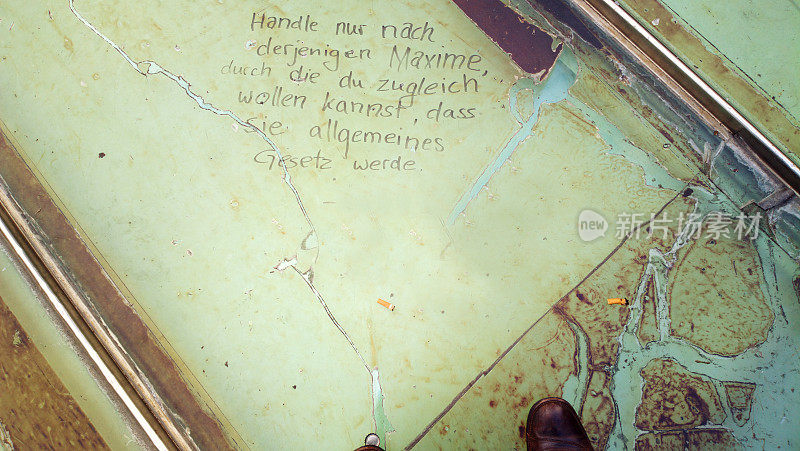 Handle nur nach
derjenigen Maxime,
durch die du zugleich
wollen kannst, dass
sie allgemeines
Gesetz werde.
new 新片场素材